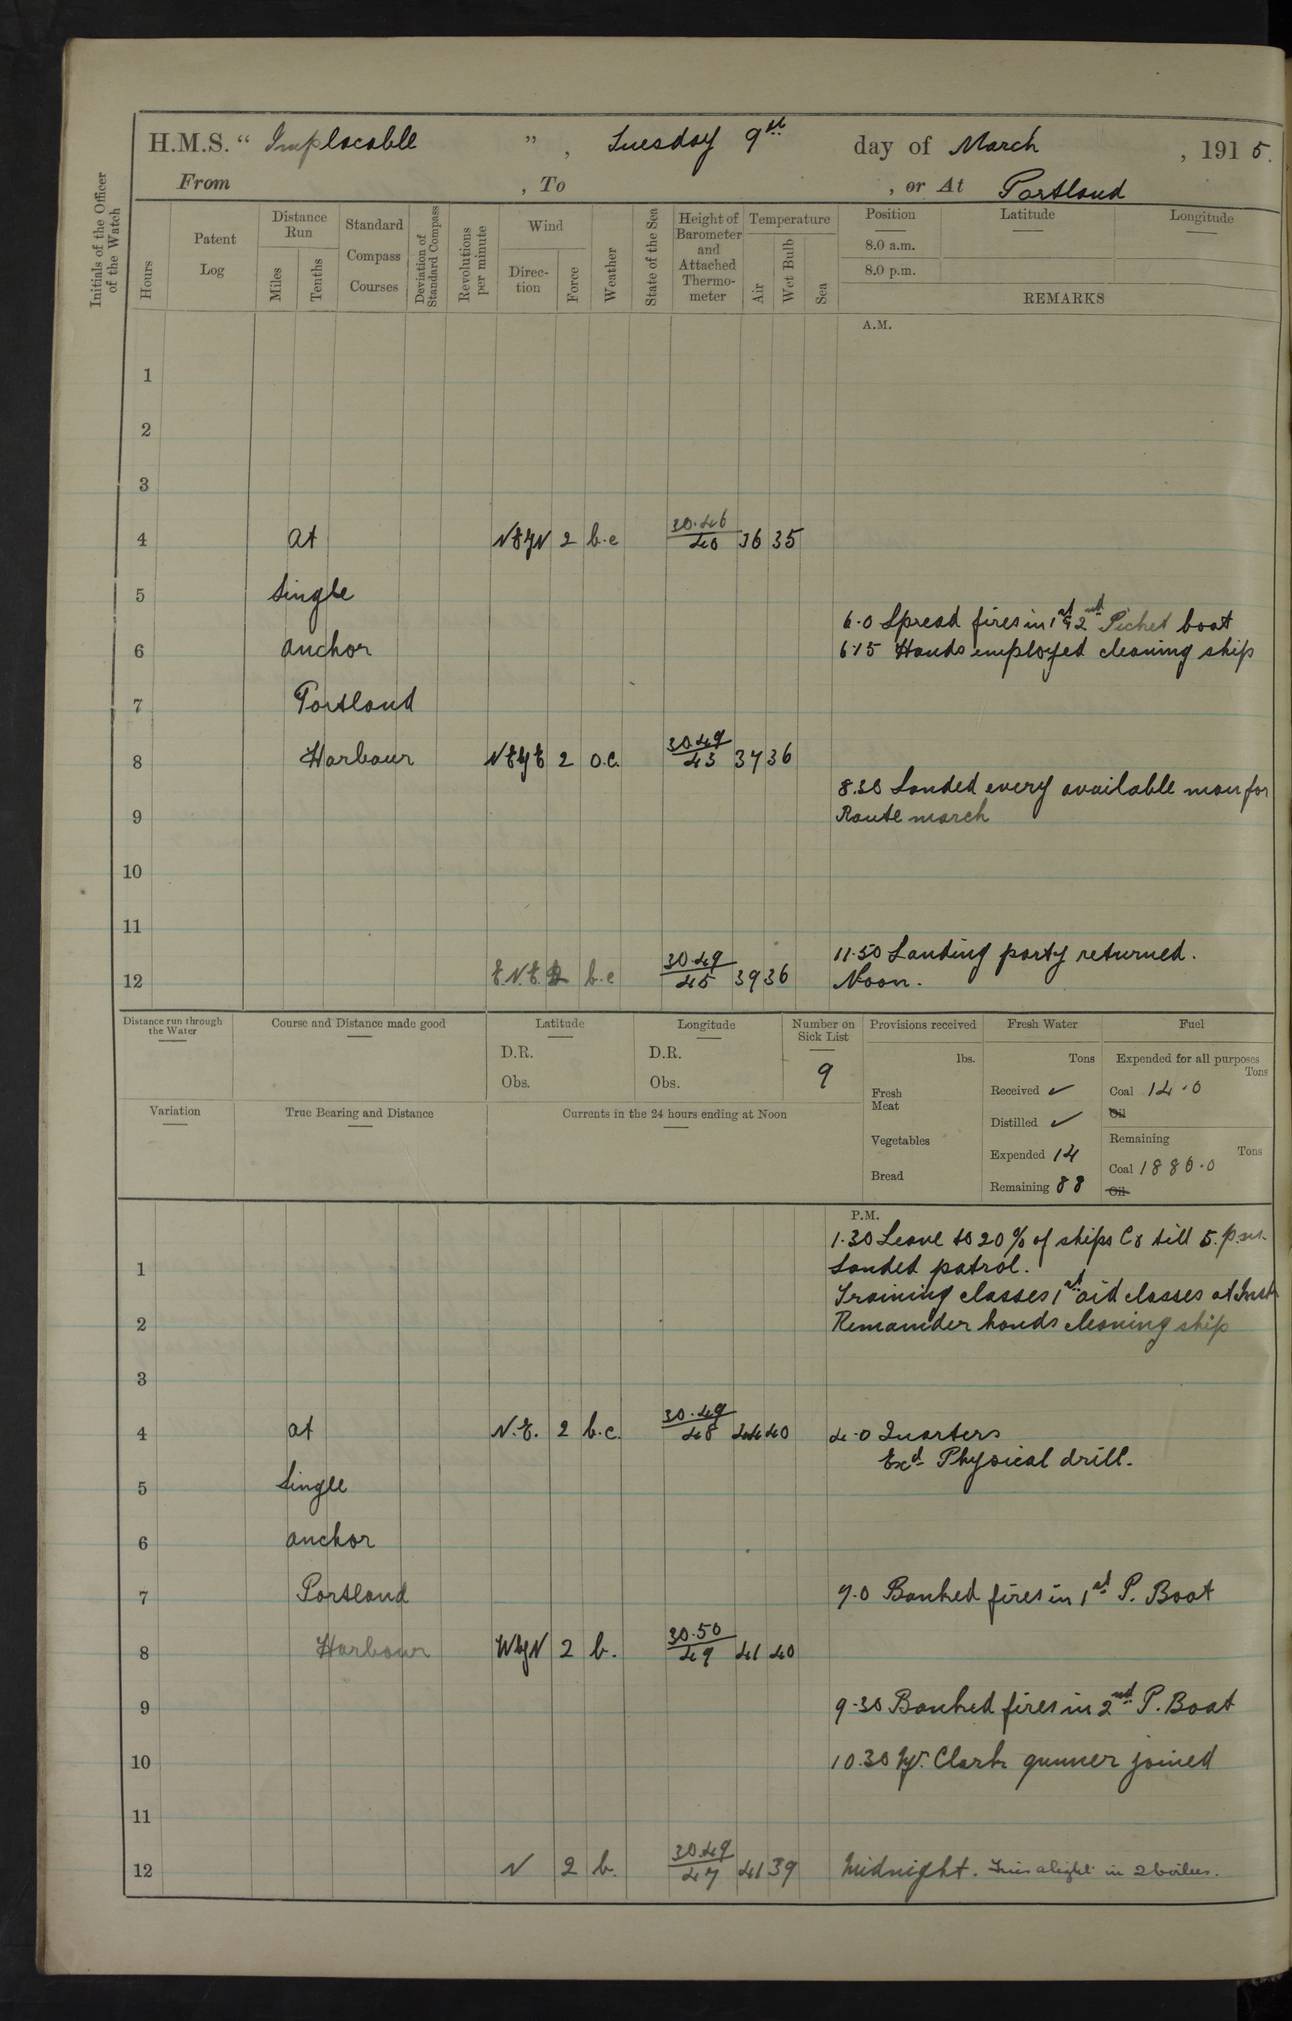 H.M.S. “ Implacable ” , Tuesday 9th day of March , 1915.
From , To , or At Portland
Initials of the Officer of the Watch
Hours
Patent Log
Distance Run
Miles
Tenths
Standard Compass Courses
Deviation of Standard Compass
Revolutions per minute
Wind
Direction
Force
Weather
State of the Sea
Height of Barometer and Attached Thermometer
Temperature
Air
Wet Bulb
Sea
Position
8.0 a.m.
8.0 p.m.
Latitude
Longitude
REMARKS
A.M.
1
2
3
4 at NEbyN 2 b.c 30.46/40 36 35
5 Single
6.0 Spread fires in 1st & 2nd Picket boat
6 anchor 6.15 Hands employed cleaning ship
7 Portland
8 Harbour NEbyE 2 o.c. 30.49/43 37 36
8.30 Landed every available man for
9 Route march
10
11
11.50 Landing party returned.
12 E.N.E. 2 b.c 30.49/45 39 36 Noon.
Distance run through the Water
Course and Distance made good
Latitude
D.R.
Obs.
Longitude
D.R.
Obs.
Number on Sick List
9
Variation
True Bearing and Distance
Currents in the 24 hours ending at Noon
Provisions received
lbs.
Fresh Meat
Vegetables
Bread
Fresh Water
Tons
Received ✓
Distilled ✓
Expended 14
Remaining 88
Fuel
Expended for all purposes
Tons
Coal 14.0
Oil
Remaining
Tons
Coal 1886.0
Oil
P.M.
1.30 Leave to 20% of ships Co till 5. p.m.
1 Landed patrol.
Training classes 1st aid classes at Inst
2 Remainder hands cleaning ship
3
4 at N.E. 2 b.c. 30.49/48 44 40 4.0 Quarters
Exd Physical drill.
5 Single
6 anchor
7 Portland 7.0 Banked fires in 1st P. Boat
8 Harbour WbyN 2 b. 30.50/49 41 40
9 9.30 Banked fires in 2nd P. Boat
10 10.30 Mr. Clark gunner joined
11
12 N 2 b. 30.49/47 41 39 Midnight. Fires alight in 2 boilers.